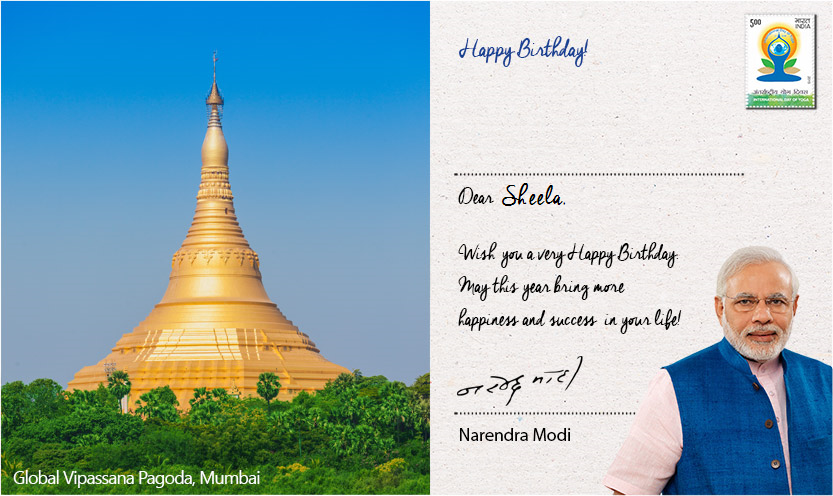 Happy Birthday!
5.00
भारत
INDIA
अंतर्राष्ट्रीय योग दिवस
INTERNATIONAL DAY OF YOGA
Dear Sheela.
Wish you a very Happy Birthday.
May this year bring more
happiness and success in your life!
नरेन्द्र मोदी
Narendra Modi
Global Vipassana Pagoda, Mumbai